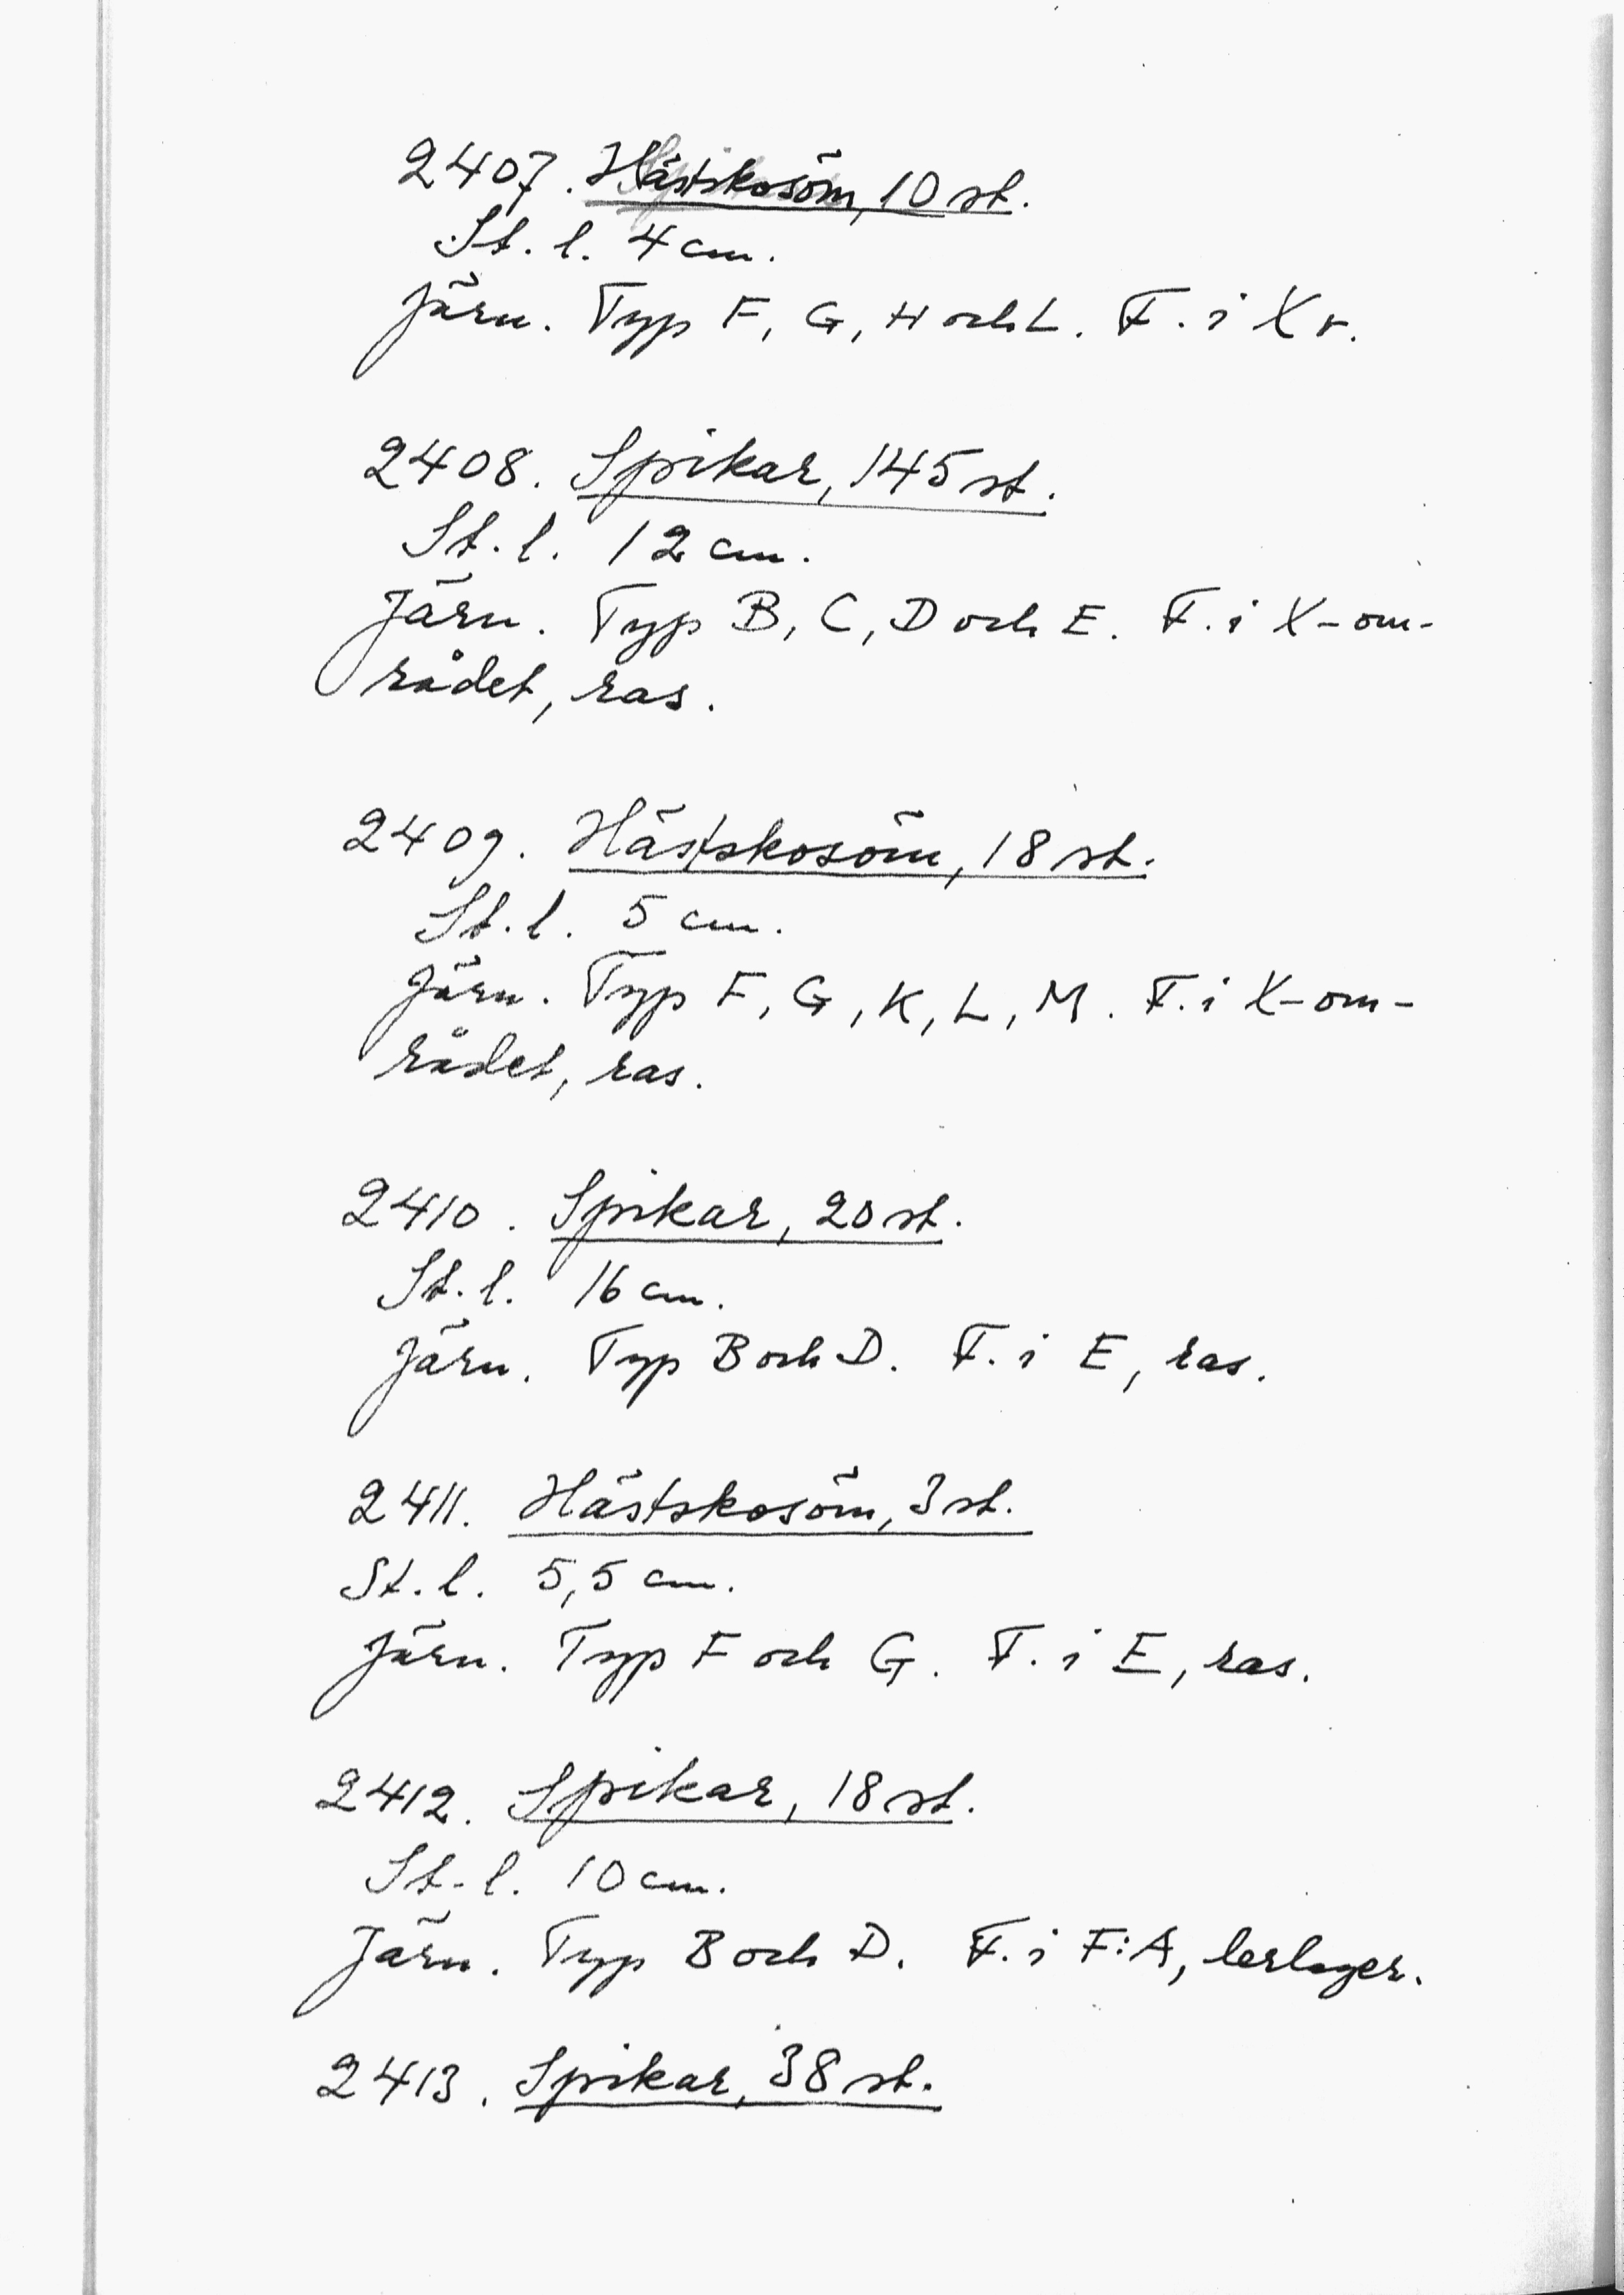 2407. Hästskosöm, 10 st.
St. l. 4 cm.
Järn. Typ F, G, H och L. F. i X v.
2408. Spikar, 145 st.
St. l. 12 cm.
Järn. Typ B, C, D och E. F. i X-om-
rådet, ras.
2409. Hästskosöm, 18 st.
St. l. 5 cm.
Järn. Typ F, G, K, L, M. F. i X-om-
rådet, ras.
2410. Spikar, 20 st.
St. l. 16 cm.
Järn. Typ B och D. F. i E, ras.
2411. Hästskosöm, 3 st.
St. l. 5,5 cm.
Järn. Typ F och G. F. i E, ras.
2412. Spikar, 18 st.
St. l. 10 cm.
Järn. Typ B och D. F. i F:A, lerlager.
2413. Spikar, 38 st.